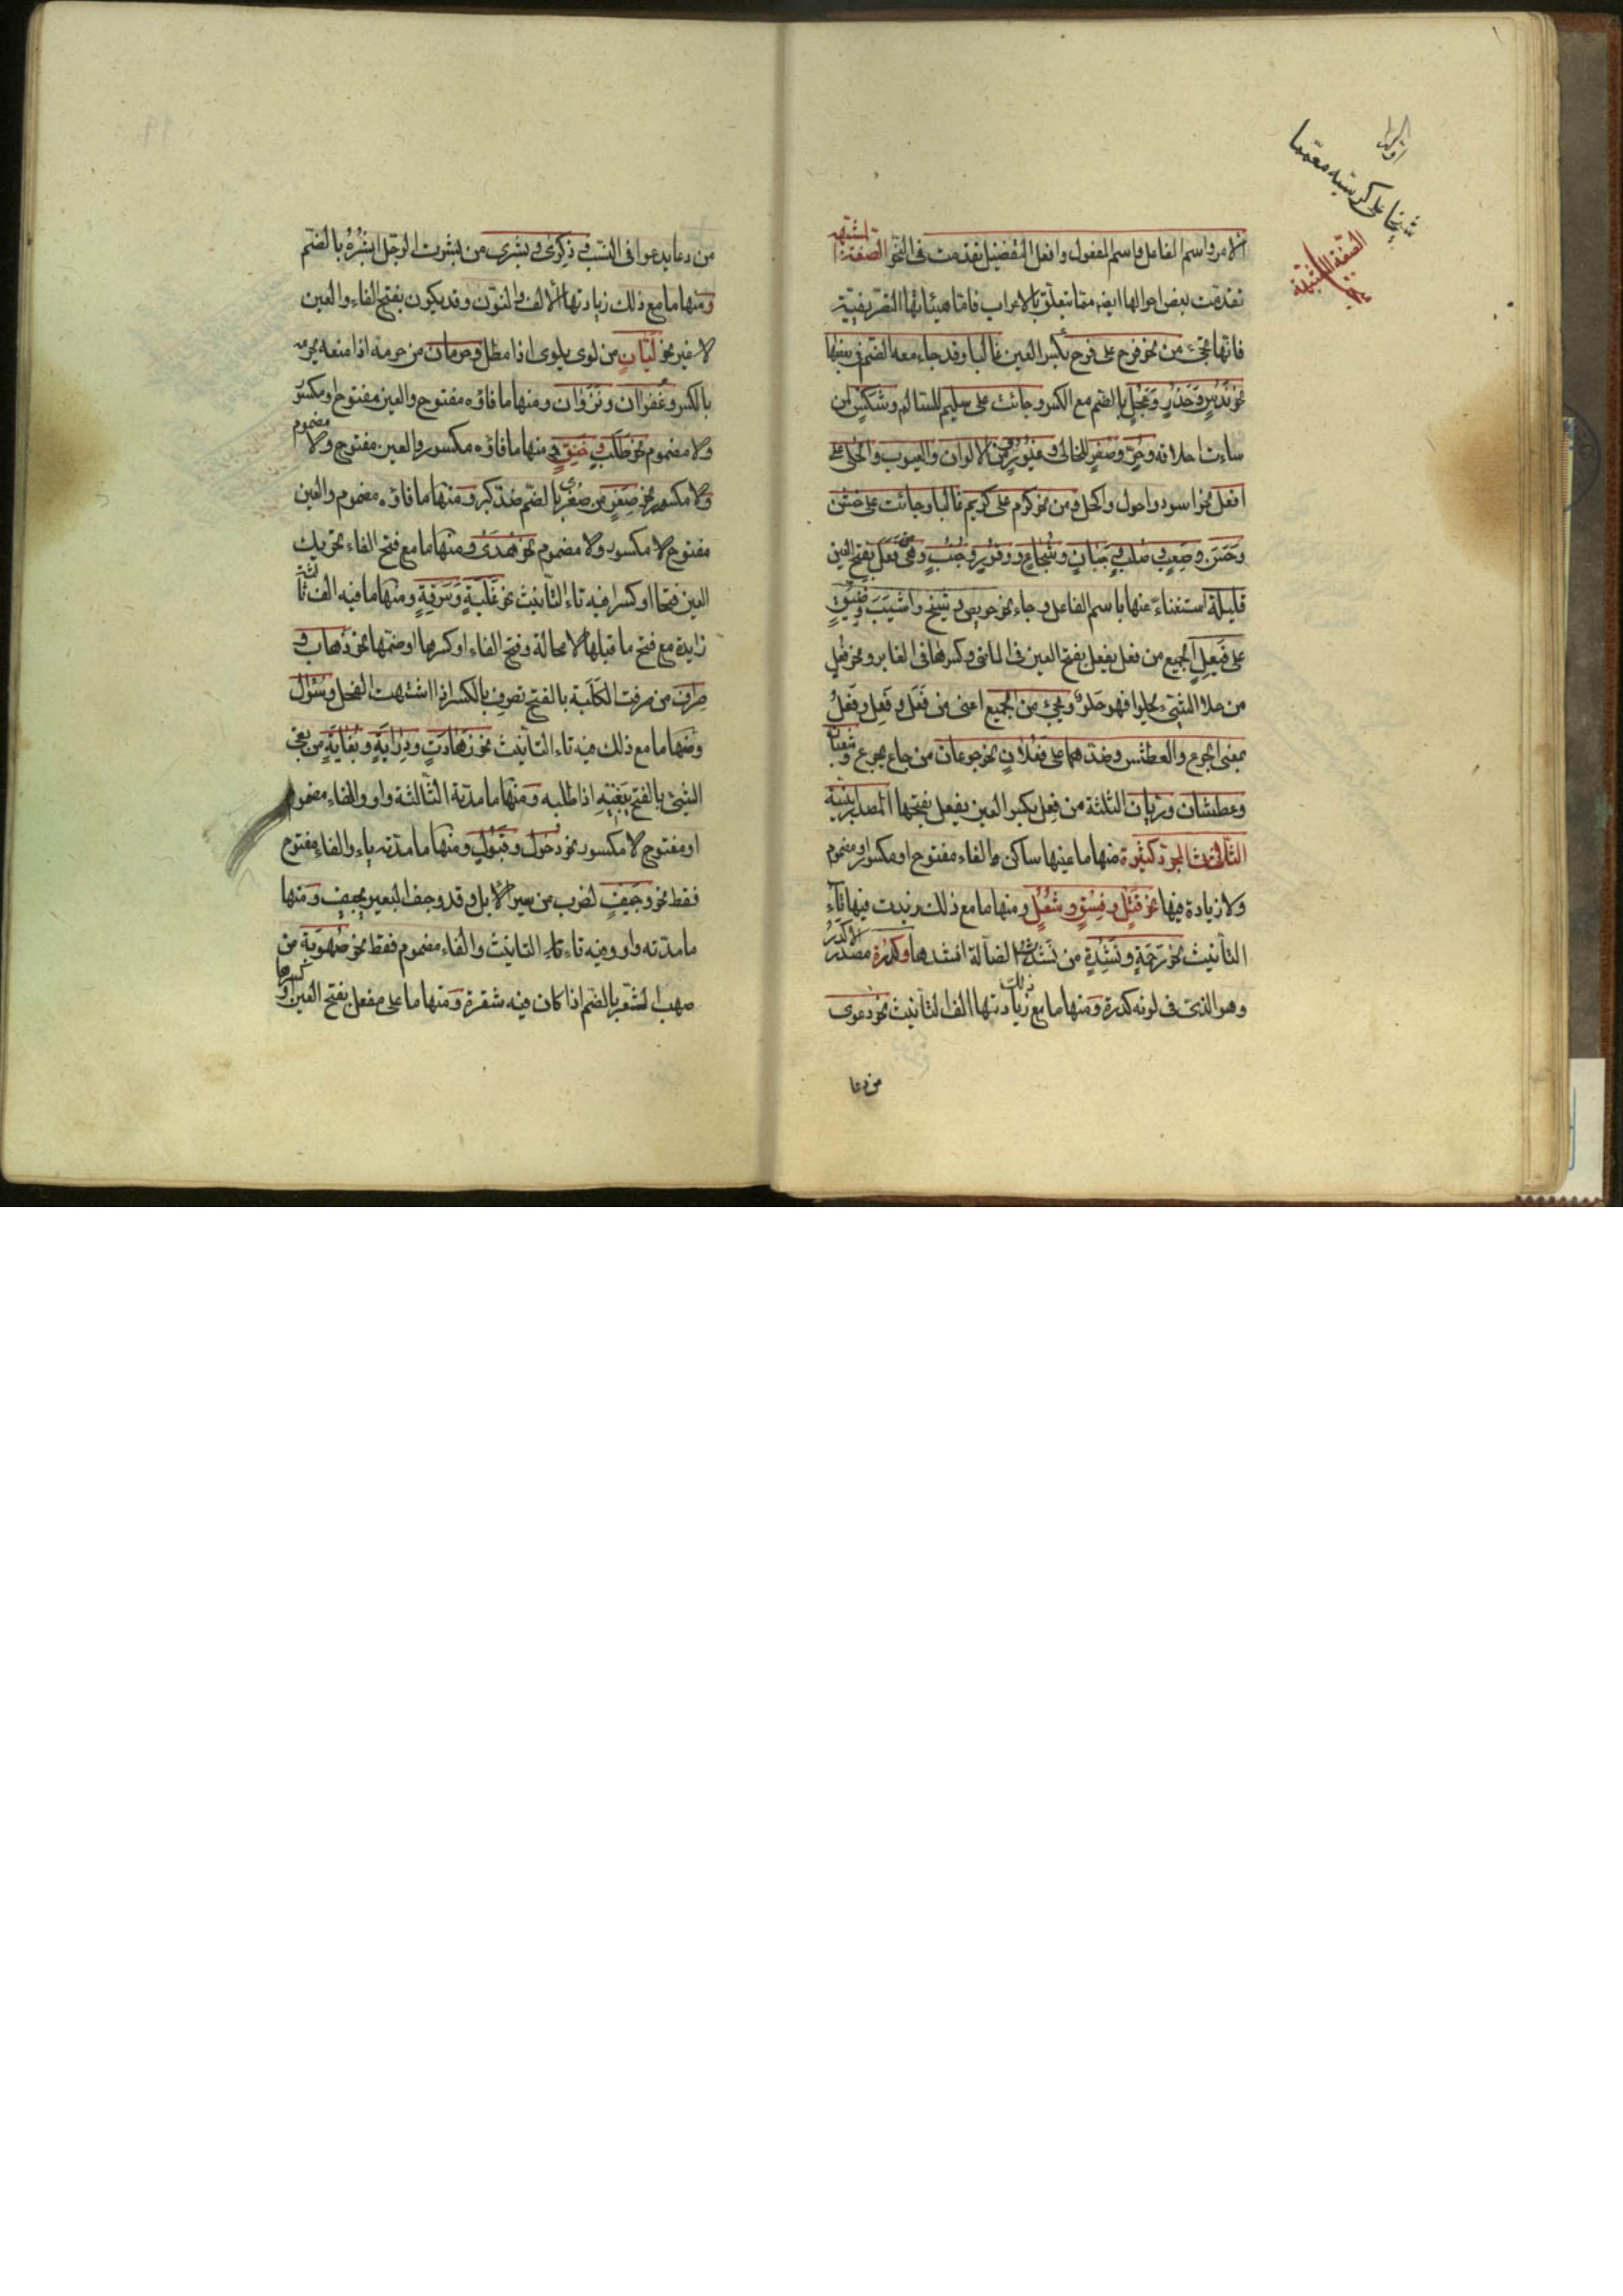 الامر واسم الفاعل واسم المفعول وافعل التفضيل تقدمت فى النحو الصفة المشبهة
تقدمت بعض احوالها ايضا مما تتعلق بالاعراب فاما هيئاتها التصريفية
فانها تجئ من نحو فرح على فرح بكسر العين غالبا وقد جاء معه الضم فى بعضها
نحو ندس وحذر وعجل بالضم مع الكسر وجائت على سليم للسالم وشكس لمن
ساءت اخلاقه وحر وصفر للخالى وغيور ومن الالوان والعيوب والحلى على
افعل نحو اسود واحول واكحل ومن نحو كرم على كريم غالبا وجائت على خشن
وحسن وصعب وصلب وجبان وشجاع ووقور وجنب وهى من فعل بفتح العين
قليلة استغناء عنها باسم الفاعل وجاء نحو حريص وشيخ واشيب وضيق
على فيعل الجميع من فعل يفعل بفتح العين فى الماضى وكسرها فى الغابر ونحو فعل
من حلا الشيئ يحلوا فهو حلو ويجئ من الجميع اعنى من فعل وفعل وفعل
بمعنى الجوع والعطش وضدهما على فعلان نحو جوعان من جاع يجوع وشبعان
وعطشان وريان الثلثة من فعل بكسر العين يفعل بفتحها المصدر ابنية
الثلاثى المجرد كثيرة منها ما عينها ساكن والفاء مفتوح او مكسور او مضموم
ولا زيادة فيها نحو قتل وفسق وشغل ومنها ما مع ذلك زيدت فيها تاء
التأنيث نحو رحمة ونشدة من نشدت الضآلة انشدها وكدرة مصدر الاكدر
وهو الذى فى لونه كدرة ومنها ما مع ذلك زيادتها الف التأنيث نحو دعوى
من دعا
من دعا يدعوا فى النسب وذكرى وبشرى من بشرت الرجل ابشره بالضم
ومنها ما مع ذلك زيادتها الالف والنون وقد يكون بفتح الفاء والعين
لا غير نحو ليان من لوى يلوى اذا مطل وحرمان من حرمه اذا منعه يحرمه
بالكسر وغفران ونزوان ومنها ما فاؤه مفتوح والعين مفتوح او مكسور
ولا مضموم نحو طلب وخنق ومنها ما فاؤه مكسور والعين مفتوح ولا مضموم
ولا مكسور نحو صغر من صغر بالضم ضد كبر ومنها ما فاؤه مضموم والعين
مفتوح لا مكسور ولا مضموم نحو هدى ومنها ما مع فتح الفاء تحريك
العين فتحا او كسرا فيه تاء التأنيث نحو غلبة وسرقة ومنها ما فيه الف ثالثة
زايدة مع فتح ما قبلها لا محالة وفتح الفاء او كسرها او ضمها نحو ذهاب و
صراف من صرفت الكلبة بالفتح تصرف بالكسر اذا اشتهت الفحل وسؤال
ومنها ما مع ذلك فيه تاء التأنيث نحو زهادة ودراية وبغاية من بغى
الشيئ بالفتح يبغيه اذا طلبه ومنها ما مدته الثالثة واو والفاء مضموم
او مفتوح لا مكسور نحو دخول وقبول ومنها ما مدته ياء والفاء مفتوح
فقط نحو وجيف لضرب من سير الابل وقد وجف البعير يجف ومنها
ما مدته واو وفيه تاء التانيث والفاء مضموم فقط نحو صهوبة من
صهب الشعر بالضم اذا كان فيه شقرة ومنها ما على مفعل بفتح العين او كسرها
شيخا على كرسيه معمما
الصفة المشبهة